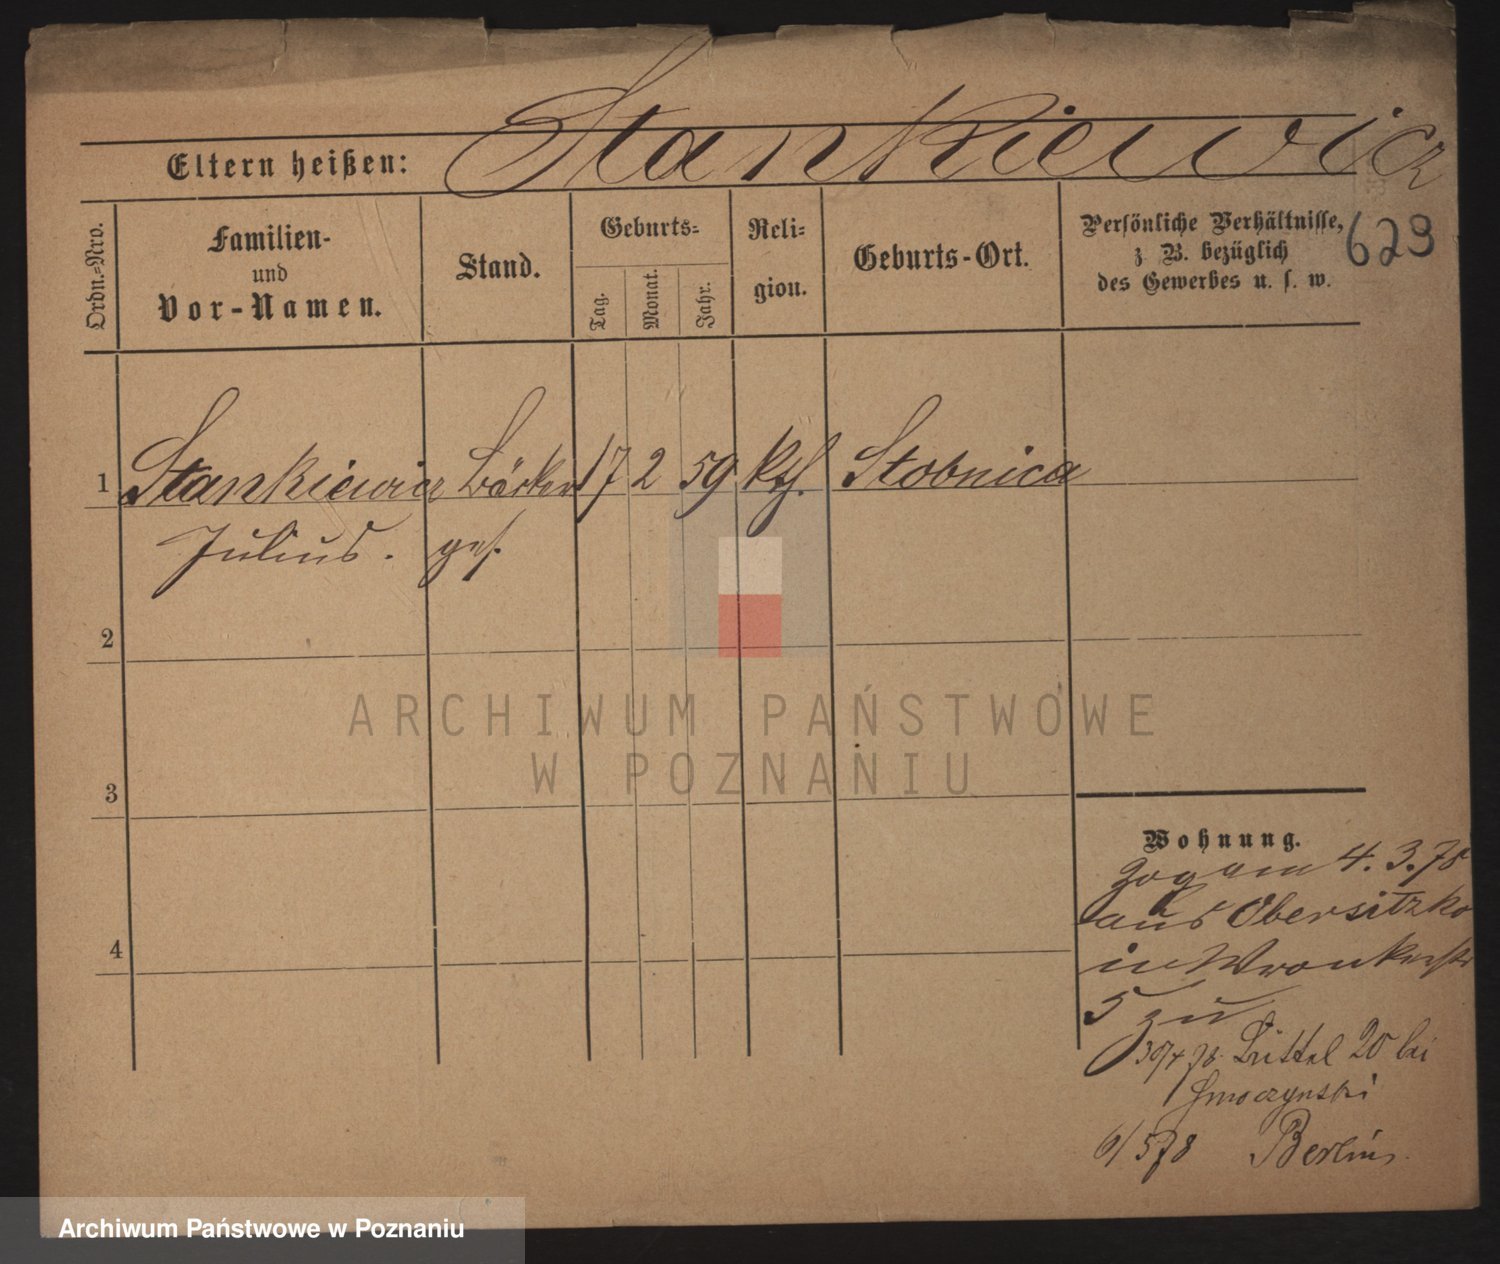 Stankiewicz
Eltern heißen:
Ordn.-Nro.
Familien-
und
Vor-Namen.
Stand.
Geburts-
Tag.
Monat.
Jahr.
Reli-
gion.
Geburts-Ort.
Persönliche Verhältnisse,
z. B. bezüglich
des Gewerbes u. s. w.
623
1 Stankiewicz Bäcker 17 2 59 kth. Stobnica
Julius. ges.
2
3
4
Wohnung.
Zog am 4. 3. 78
aus Obersitzko
in Wronkerstr
5 zu
30/4 78. Büttel 20 bei
Smoczynski
6/5 78 Berlin.
ARCHIWUM PAŃSTWOWE
W POZNANIU
Archiwum Państwowe w Poznaniu